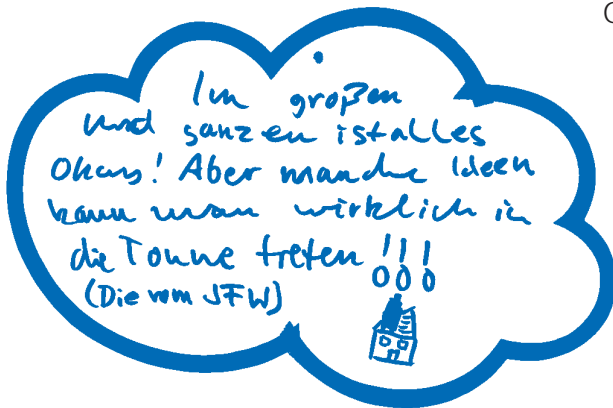 Im großen
und ganzen ist alles
Okay! Aber manche Ideen
kann man wirklich in
die Tonne treten !!!
(Die vom JFW)